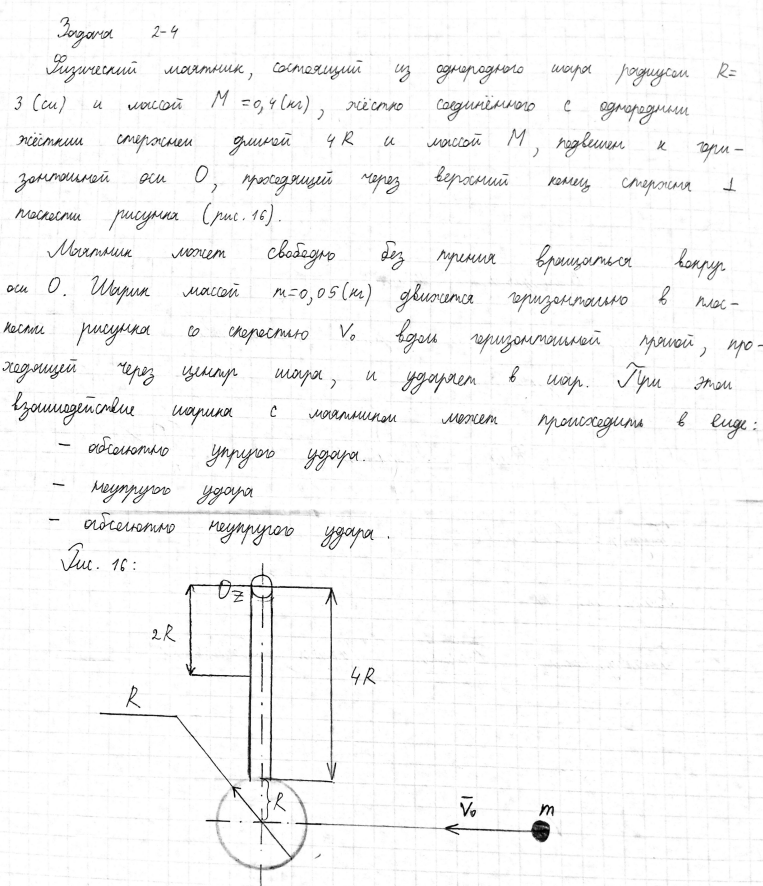 Задача 2-4
Физический маятник, состоящий из однородного шара радиусом R=
3 (см) и массой M =0,4(кг), жёстко соединённого с однородным
жёстким стержнем длиной 4R и массой M, подвешен к гори-
зонтальной оси O, проходящей через верхний конец стержня ⊥
плоскости рисунка (рис. 16).
Маятник может свободно без трения вращаться вокруг
оси O. Шарик массой m=0,05(кг) движется горизонтально в плос-
кости рисунка со скоростью V₀ вдоль горизонтальной прямой, про-
ходящей через центр шара, и ударяет в шар. При этом
взаимодействие шарика с маятником может происходить в виде:
– абсолютно упругого удара.
– неупругого удара
– абсолютно неупругого удара.
Рис. 16:
O z
2R
4R
R
R
V̄₀ m